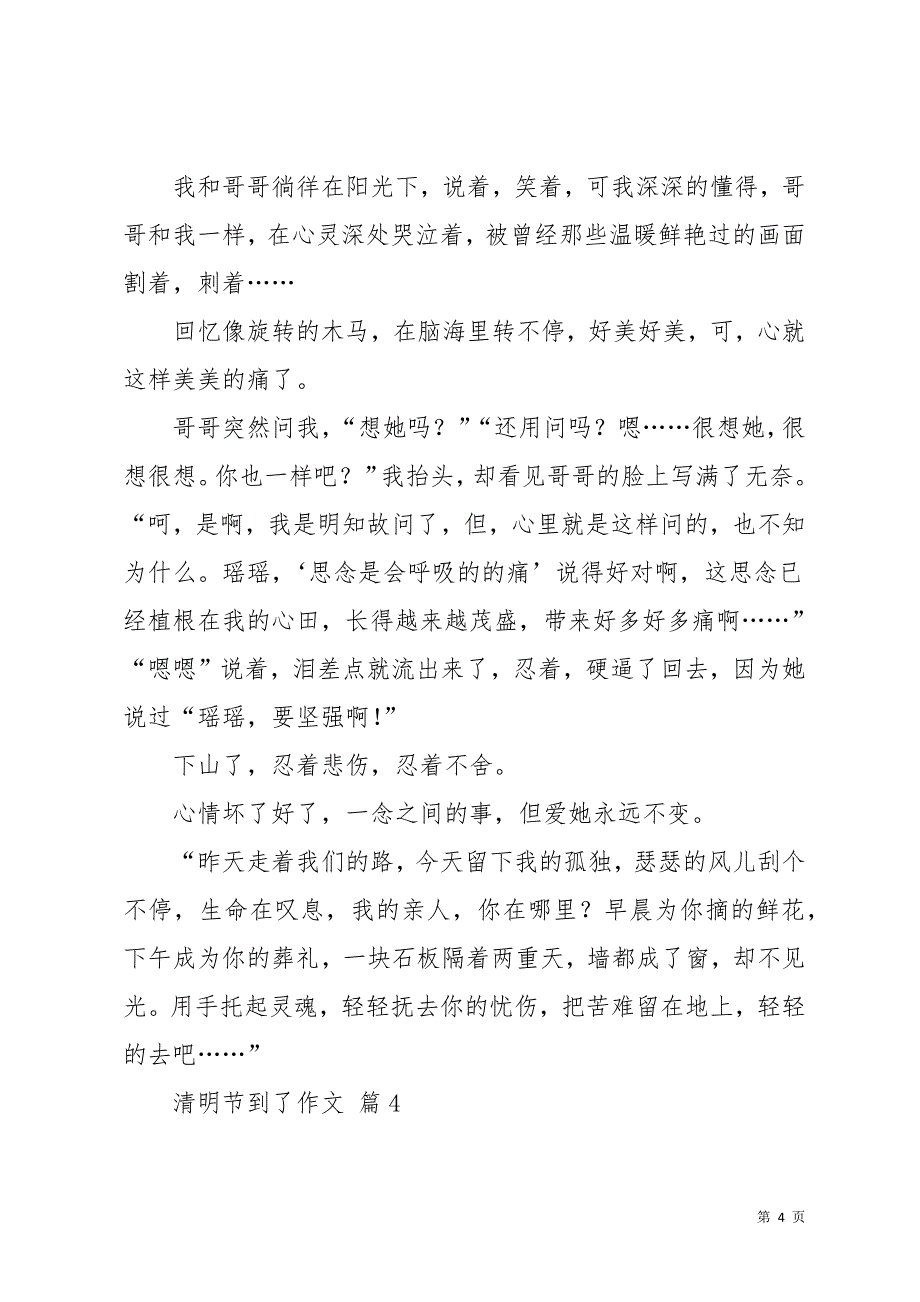 我和哥哥徜徉在阳光下，说着，笑着，可我深深的懂得，哥
哥和我一样，在心灵深处哭泣着，被曾经那些温暖鲜艳过的画面
割着，刺着……
回忆像旋转的木马，在脑海里转不停，好美好美，可，心就
这样美美的痛了。
哥哥突然问我，“想她吗？”“还用问吗？嗯……很想她，很
想很想。你也一样吧？”我抬头，却看见哥哥的脸上写满了无奈。
“呵，是啊，我是明知故问了，但，心里就是这样问的，也不知
为什么。瑶瑶，‘思念是会呼吸的的痛’说得好对啊，这思念已
经植根在我的心田，长得越来越茂盛，带来好多好多痛啊……”
“嗯嗯”说着，泪差点就流出来了，忍着，硬逼了回去，因为她
说过“瑶瑶，要坚强啊！”
下山了，忍着悲伤，忍着不舍。
心情坏了好了，一念之间的事，但爱她永远不变。
“昨天走着我们的路，今天留下我的孤独，瑟瑟的风儿刮个
不停，生命在叹息，我的亲人，你在哪里？早晨为你摘的鲜花，
下午成为你的葬礼，一块石板隔着两重天，墙都成了窗，却不见
光。用手托起灵魂，轻轻抚去你的忧伤，把苦难留在地上，轻轻
的去吧……”
清明节到了作文 篇4
第 4 页